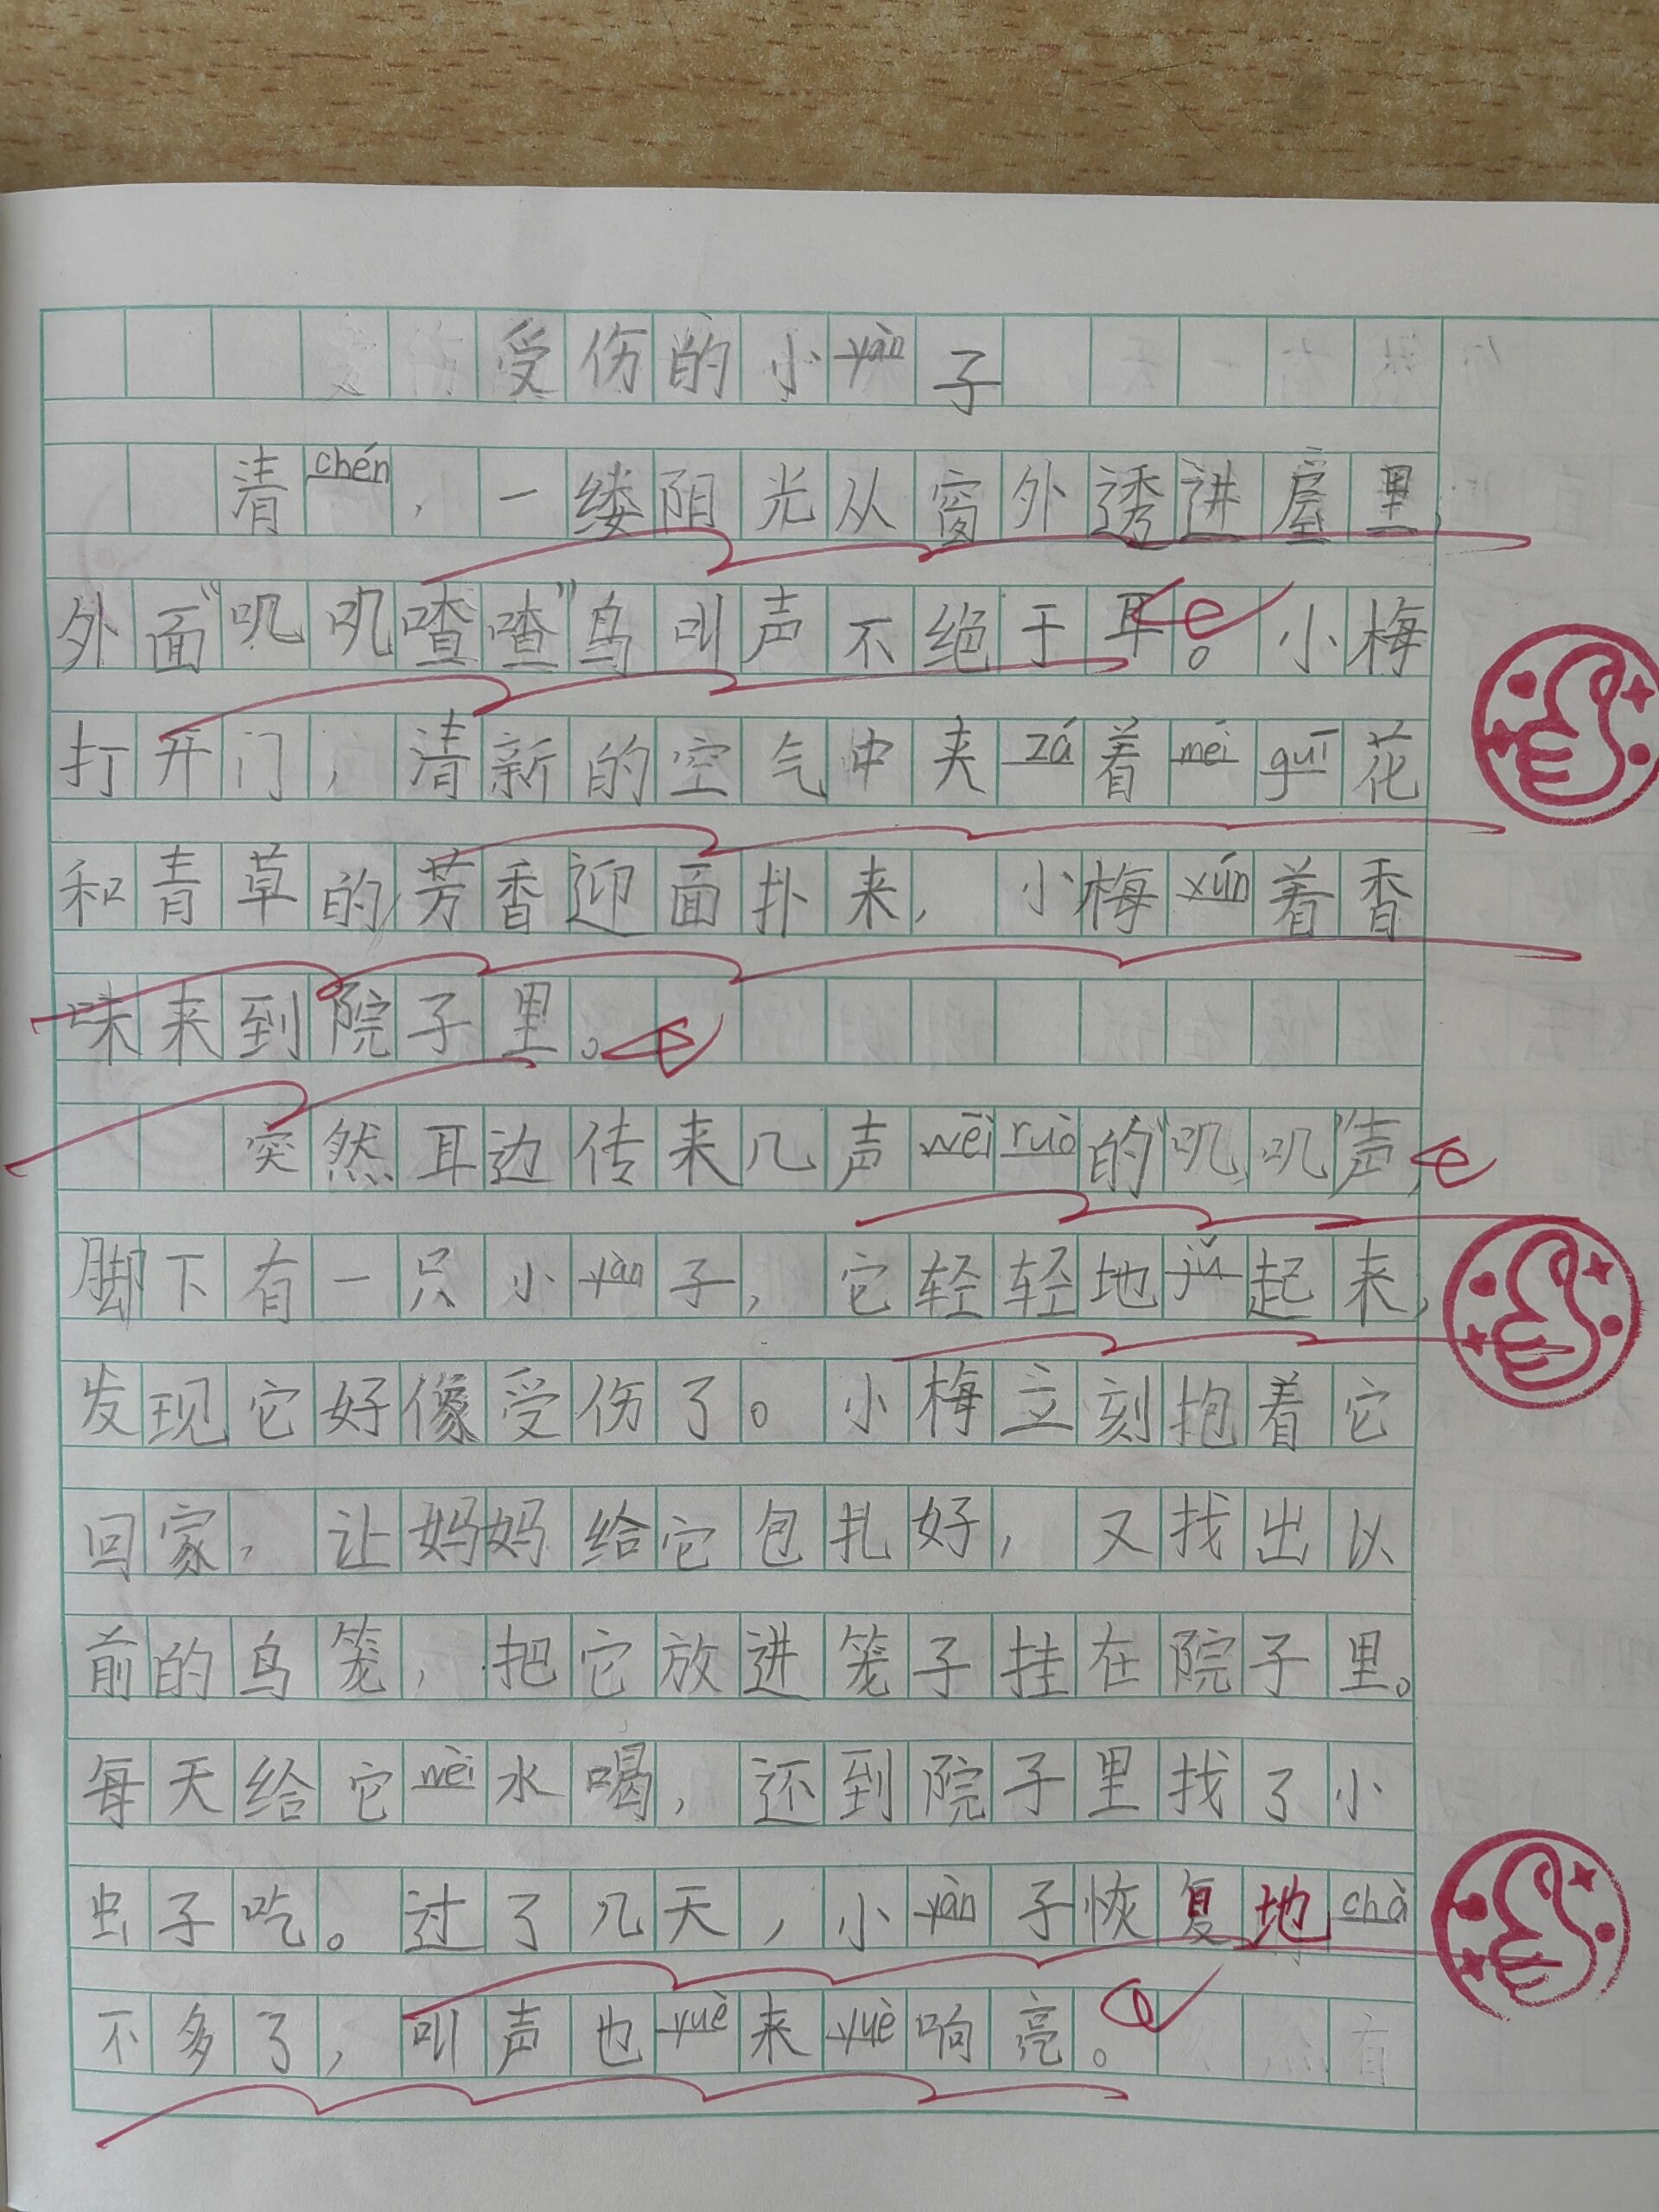 受伤的小yàn子
清chén,一缕阳光从窗外透进屋里,
外面“叽叽喳喳”鸟叫声不绝于耳。小梅
打开门,清新的空气中夹zá着méiguī花
和青草的芳香迎面扑来,小梅xún着香
味来到院子里。
突然耳边传来几声wēiruò的“叽叽”声,
脚下有一只小yàn子,它轻轻地jǔ起来,
发现它好像受伤了。小梅立刻抱着它
回家,让妈妈给它包扎好,又找出以
前的鸟笼,把它放进笼子挂在院子里。
每天给它wèi水喝,还到院子里找了小
虫子吃。过了几天,小yàn子恢复地chà
不多了,叫声也yuè来yuè响亮。